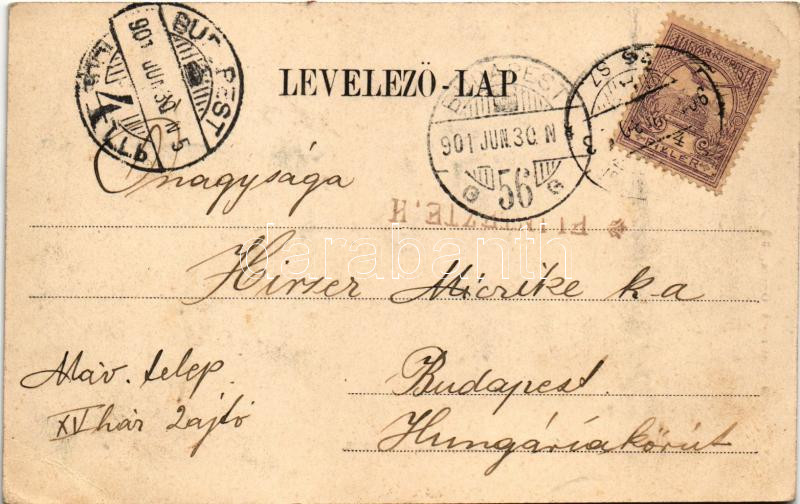 LEVELEZŐ-LAP
BUDAPEST
901 JUN. 30 N 5
BUDAPEST
901 JUN. 30. N
56
MAGYAR KIR. POSTA
4
FILLÉR
Őnagysága
Hirser Miczike k-a
darabanth
Máv. telep.
XV ház 2 ajtó
Budapest.
Hungáriakörút